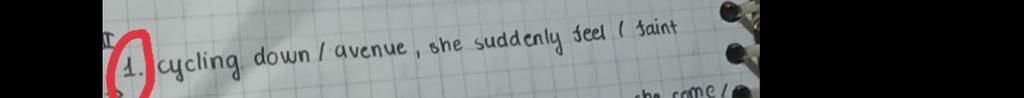 I
1. cycling down / avenue, she suddenly feel / faint
she come /